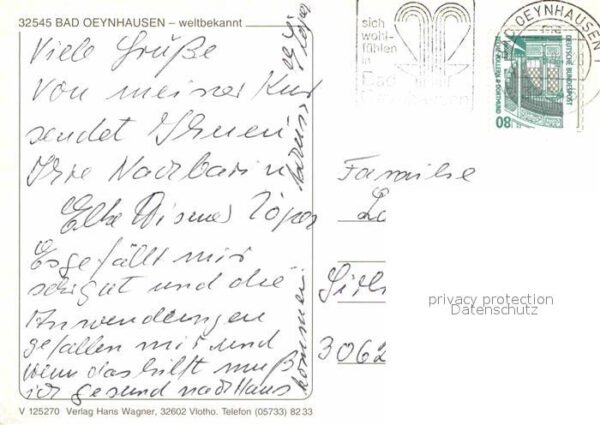 32545 BAD OEYNHAUSEN – weltbekannt
Viele Grüße
von meiner Kur
sendet Ihnen
Ihre Nachbarin
Elke
Es gefällt mir
sehr gut und die
Anwendungen
gefallen mir und
wenn das hilft muß
ich gesund nach Haus
kommen.
V 125270 Verlag Hans Wagner, 32602 Vlotho. Telefon (05733) 82 33
sich
wohl-
fühlen
in
Bad
OEYNHAUSEN 1
DEUTSCHE BUNDESPOST
80
Familie
3062
privacy protection
Datenschutz